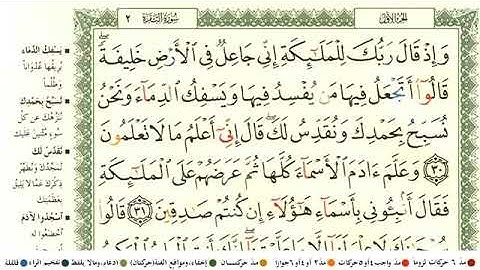 الجزء الأول
سورة البقرة ٢
وَإِذْ قَالَ رَبُّكَ لِلْمَلَٰٓئِكَةِ إِنِّى جَاعِلٌ فِى ٱلْأَرْضِ خَلِيفَةً
قَالُوٓا۟ أَتَجْعَلُ فِيهَا مَن يُفْسِدُ فِيهَا وَيَسْفِكُ ٱلدِّمَآءَ وَنَحْنُ
نُسَبِّحُ بِحَمْدِكَ وَنُقَدِّسُ لَكَ قَالَ إِنِّىٓ أَعْلَمُ مَا لَا تَعْلَمُونَ
٣٠ وَعَلَّمَ ءَادَمَ ٱلْأَسْمَآءَ كُلَّهَا ثُمَّ عَرَضَهُمْ عَلَى ٱلْمَلَٰٓئِكَةِ
فَقَالَ أَنۢبِـُٔونِى بِأَسْمَآءِ هَٰٓؤُلَآءِ إِن كُنتُمْ صَٰدِقِينَ ٣١ قَالُوا۟
يَسْفِكُ الدِّمَاء
يُرِيقُها عُدْواناً
وَظُلْماً
نُسَبِّحُ بِحَمْدِكَ
نُنَزِّهُكَ عن كلِّ
سُوءٍ مُثْنِينَ عَلَيْكَ
نُقَدِّسُ لَكَ
نُمَجِّدُكَ وَنُطَهِّرُ
ذِكْرَكَ عَمَّا لا يَلِيقُ
بِعَظَمَتِكَ
اسْجُدُوا لآدَمَ
اخْضَعُوا له
مد ٦ حركات لزوماً
مد واجب ٤ أو ٥ حركات
مد ٢ أو ٤ أو ٦ جوازاً
مد حركتان
إخفاء، ومواقع الغنة (حركتان)
إدغام، وما لا يلفظ
تفخيم الراء
قلقلة